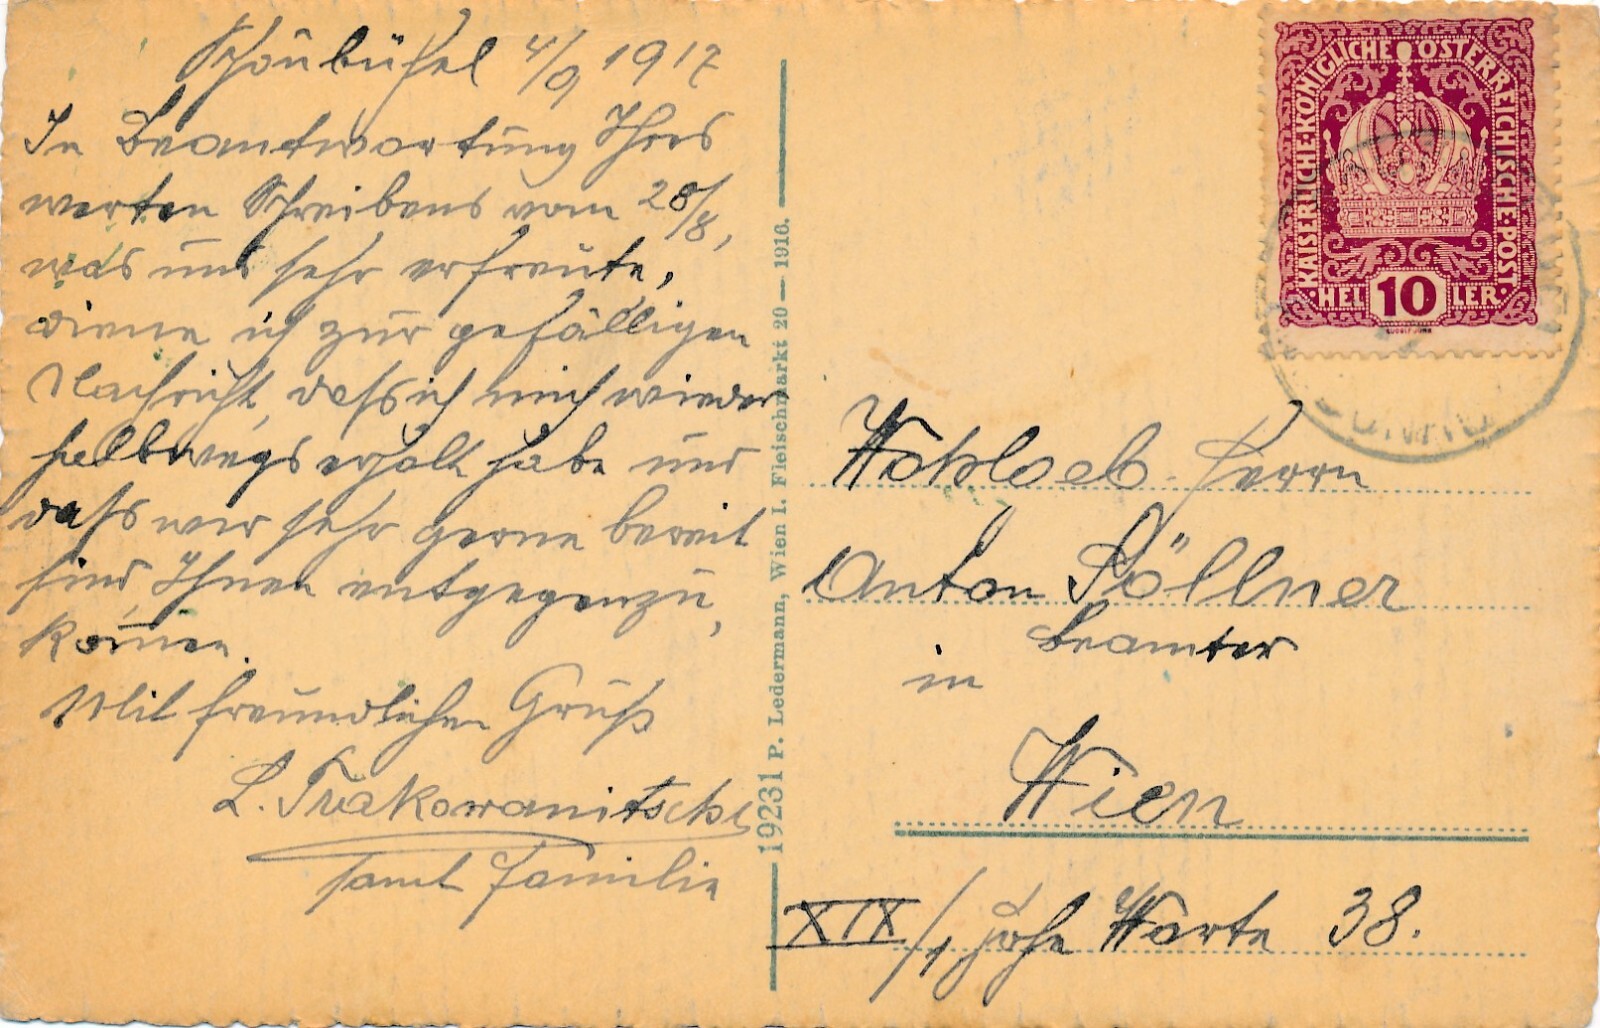 Schönbühel 4/9 1917
In Beantwortung Ihres
werten Schreibens vom 28/8,
was uns sehr erfreute,
diene ich zur gefälligen
Nachricht, dass ich mich wieder
halbwegs erholt habe und
dass wir sehr gerne bereit
sind, Ihnen entgegenzu,
kom̄en.
Mit freundlichen Gruß
L. Trakowanitsch
samt Familie
19231 P. Ledermann, Wien I. Fleischmarkt 20 — 1916.
KAISERLICHE·KÖNIGLICHE·ÖSTERREICHISCHE·POST·
·HEL 10 LER·
Wohlgeb. Herrn
Anton Söllner
Beamter
in
Wien
XIX/1 Hohe Warte 38.